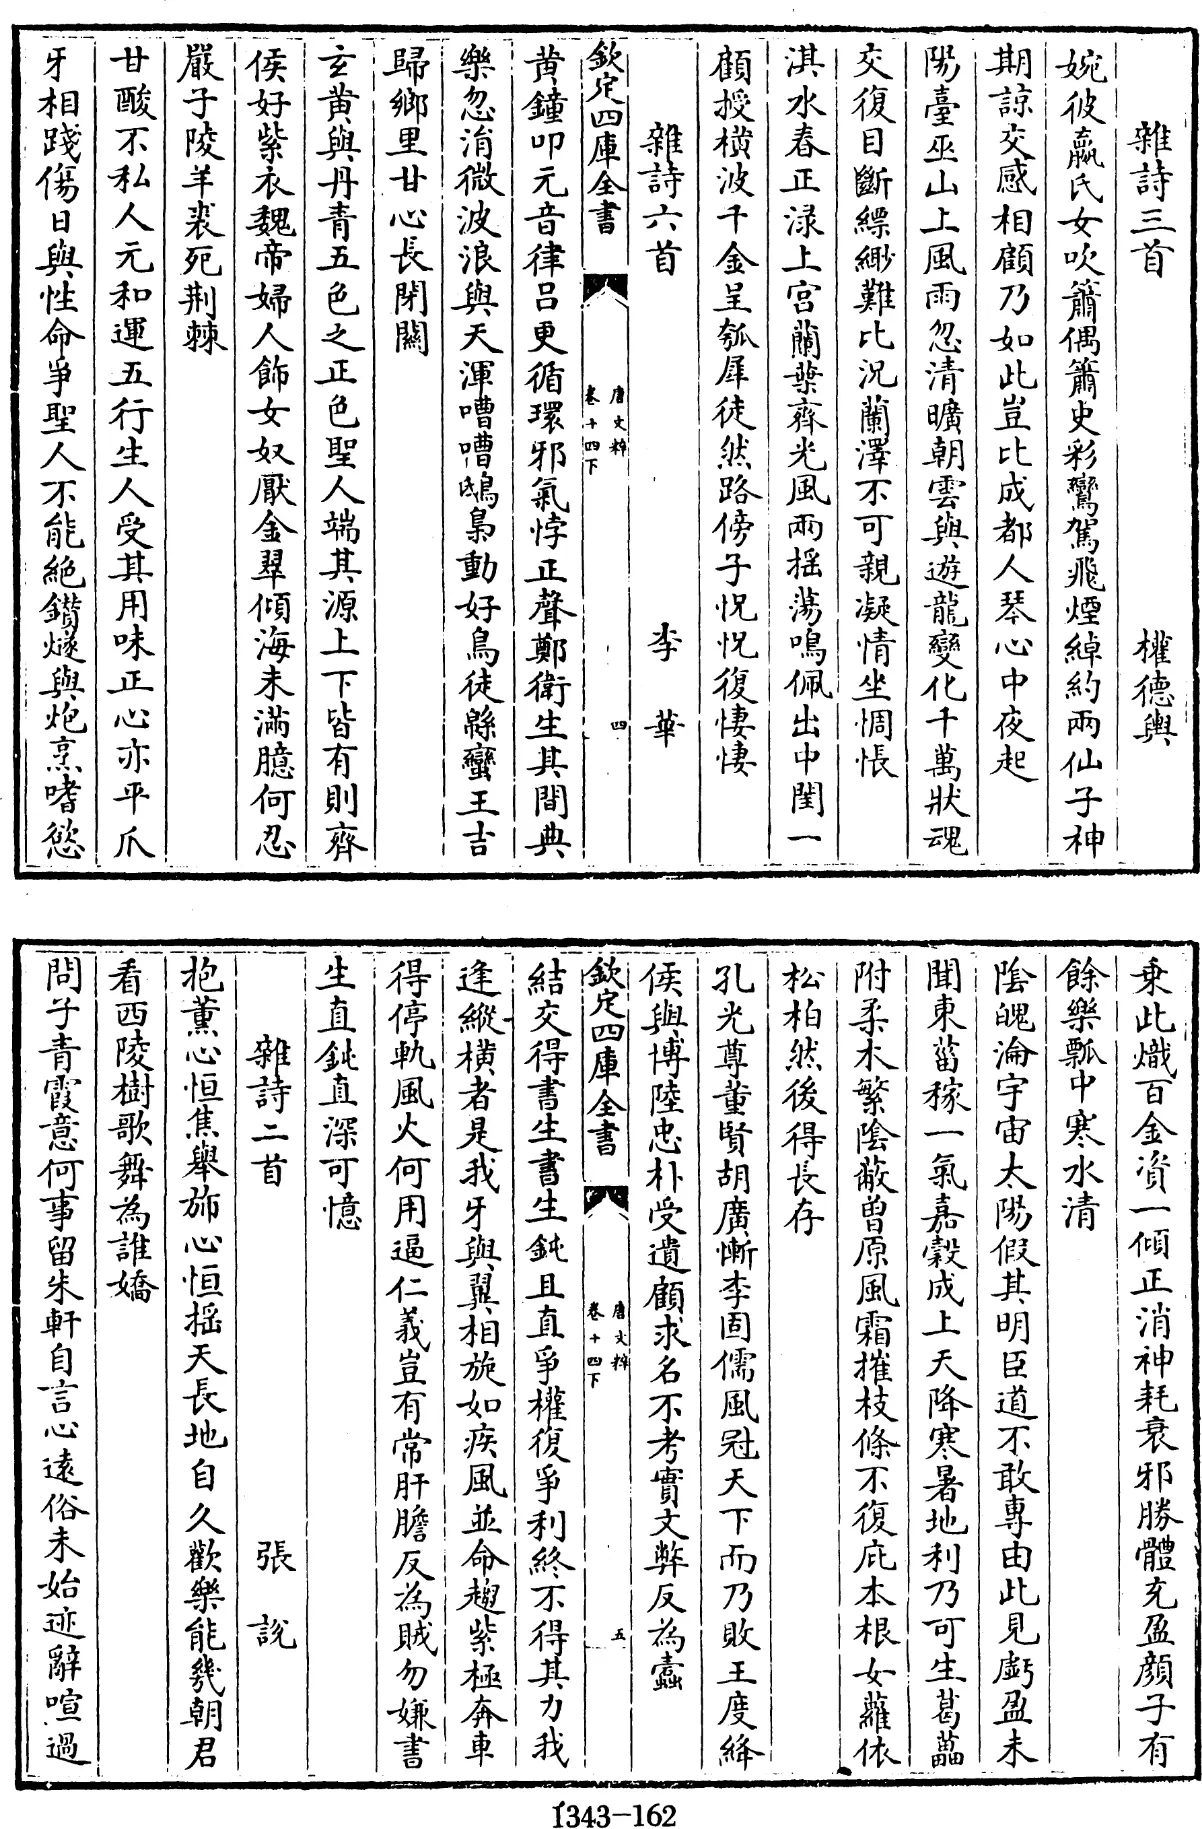 雜詩三首 權德輿
婉彼嬴氏女吹簫偶簫史彩鸞駕飛煙綽約兩仙子神
期諒交感相顧乃如此豈比成都人琴心中夜起
陽臺巫山上風雨忽清曠朝雲與遊龍變化千萬狀魂
交復目斷縹緲難比況蘭澤不可親凝情坐惆悵
淇水春正渌上宮蘭葉齊光風兩摇蕩鳴佩出中閨一
顧授橫波千金呈瓠犀徒然路傍子怳怳復悽悽
雜詩六首 李華
欽定四庫全書 唐文粹 卷十四下 四
黄鐘叩元音律吕更循環邪氣悖正聲鄭衛生其間典
樂忽涓微波浪與天渾嘈嘈鴟梟動好鳥徒緜蠻王吉
歸鄉里甘心長閉關
玄黄與丹青五色之正色聖人端其源上下皆有則齊
侯好紫衣魏帝婦人飾女奴厭金翠傾海未滿臆何忍
嚴子陵羊裘死荆棘
甘酸不私人元和運五行生人受其用味正心亦平爪
牙相踐傷日與性命爭聖人不能絶鑚燧與炮烹嗜慾
乘此熾百金資一傾正消神耗衰邪勝體充盈顔子有
餘樂瓢中寒水清
陰魄淪宇宙太陽假其明臣道不敢專由此見虧盈未
聞東菑稼一氣嘉榖成上天降寒暑地利乃可生葛藟
附柔木繁陰蔽曽原風霜摧枝條不復庇本根女蘿依
松柏然後得長存
孔光尊董賢胡廣慚李固儒風冠天下而乃敗王度絳
侯與博陸忠朴受遺顧求名不考實文弊反為蠧
欽定四庫全書 唐文粹 卷十四下 五
結交得書生書生鈍且直爭權復爭利終不得其力我
逢縱橫者是我牙與翼相旋如疾風並命趨紫極奔車
得停軌風火何用逼仁義豈有常肝膽反為賊勿嫌書
生直鈍直深可憶
雜詩二首 張說
抱薰心恒焦舉斾心恒摇天長地自久歡樂能幾朝君
看西陵樹歌舞為誰嬌
問子青霞意何事留朱軒自言心遠俗未始迹辭喧過
1343-162